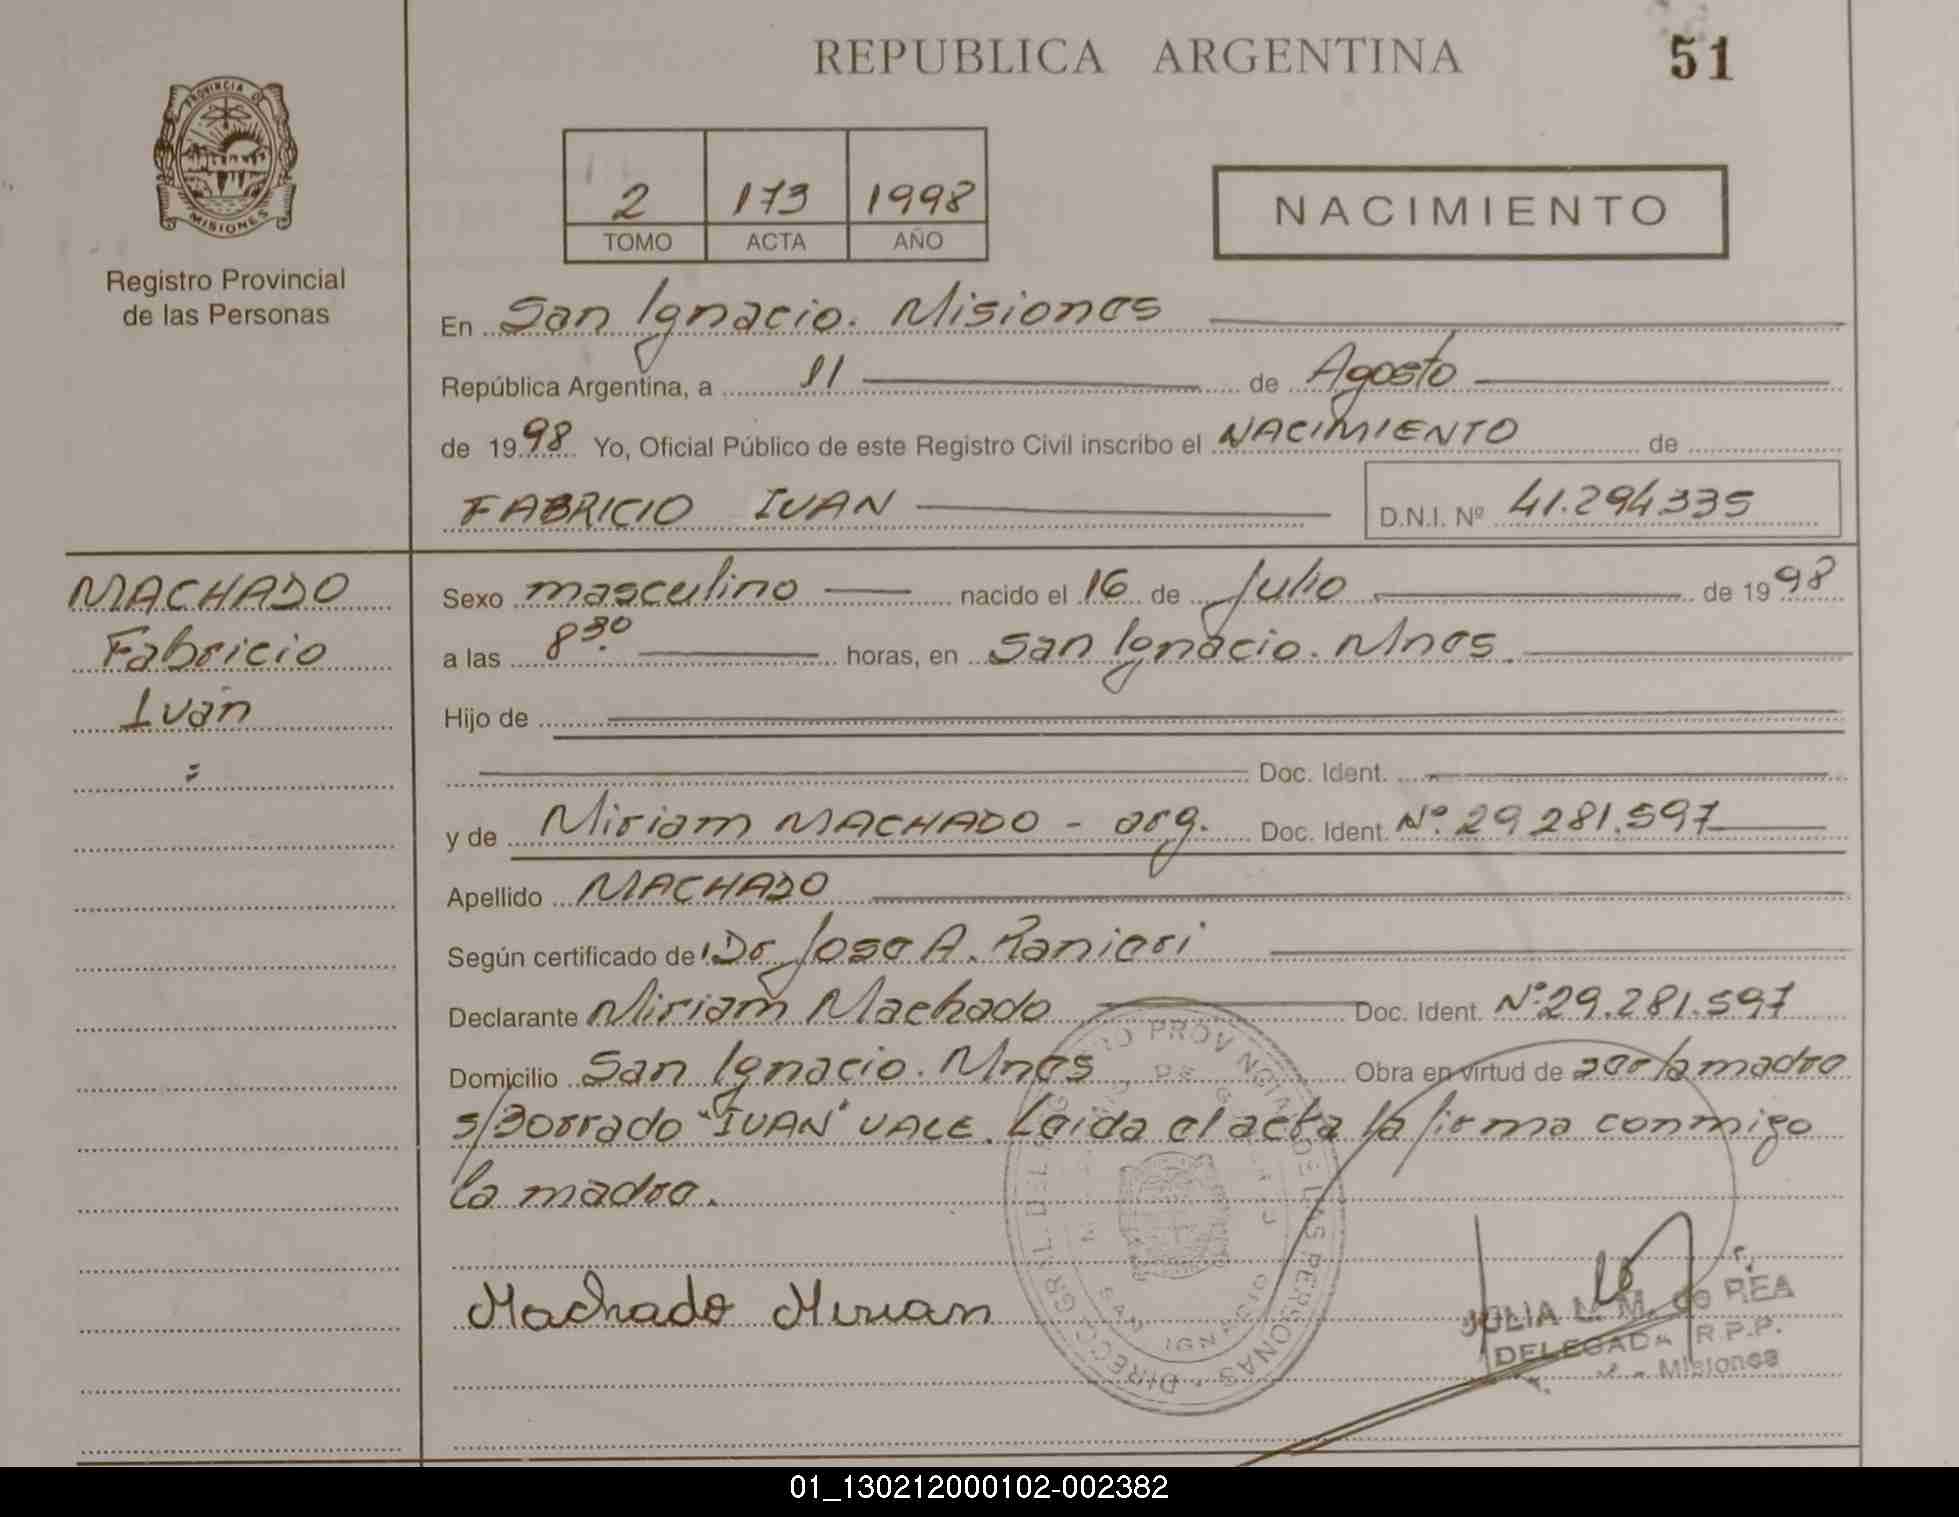 REPUBLICA ARGENTINA
51
PROVINCIA DE
MISIONES
Registro Provincial
de las Personas
2 173 1998
TOMO ACTA AÑO
NACIMIENTO
En San Ignacio. Misiones
República Argentina, a 11 de Agosto
de 1998 Yo, Oficial Público de este Registro Civil inscribo el NACIMIENTO de
FABRICIO IVAN D.N.I. Nº 41.294335
MACHADO
Fabricio
Ivan
Sexo masculino nacido el 16 de Julio de 1998
a las 8 30. horas, en San Ignacio. Mnes.
Hijo de
Doc. Ident.
y de Miriam MACHADO - arg. Doc. Ident. Nº. 29 281.597
Apellido MACHADO
Según certificado de Dr Jose A. Ranieri
Declarante Miriam Machado Doc. Ident. Nº 29.281.597
Domicilio San Ignacio. Mnes Obra en virtud de ser la madre
s/Borrado "IVAN" VALE. Leida el acta la firma conmigo
la madre.
Machado Mirian
DIRECC. GRAL. DEL REGISTRO PROVINCIAL DE LAS PERSONAS
SAN IGNACIO
JULIA L. M. de REA
DELEGADA R.P.P.
Misiones
01_130212000102-002382